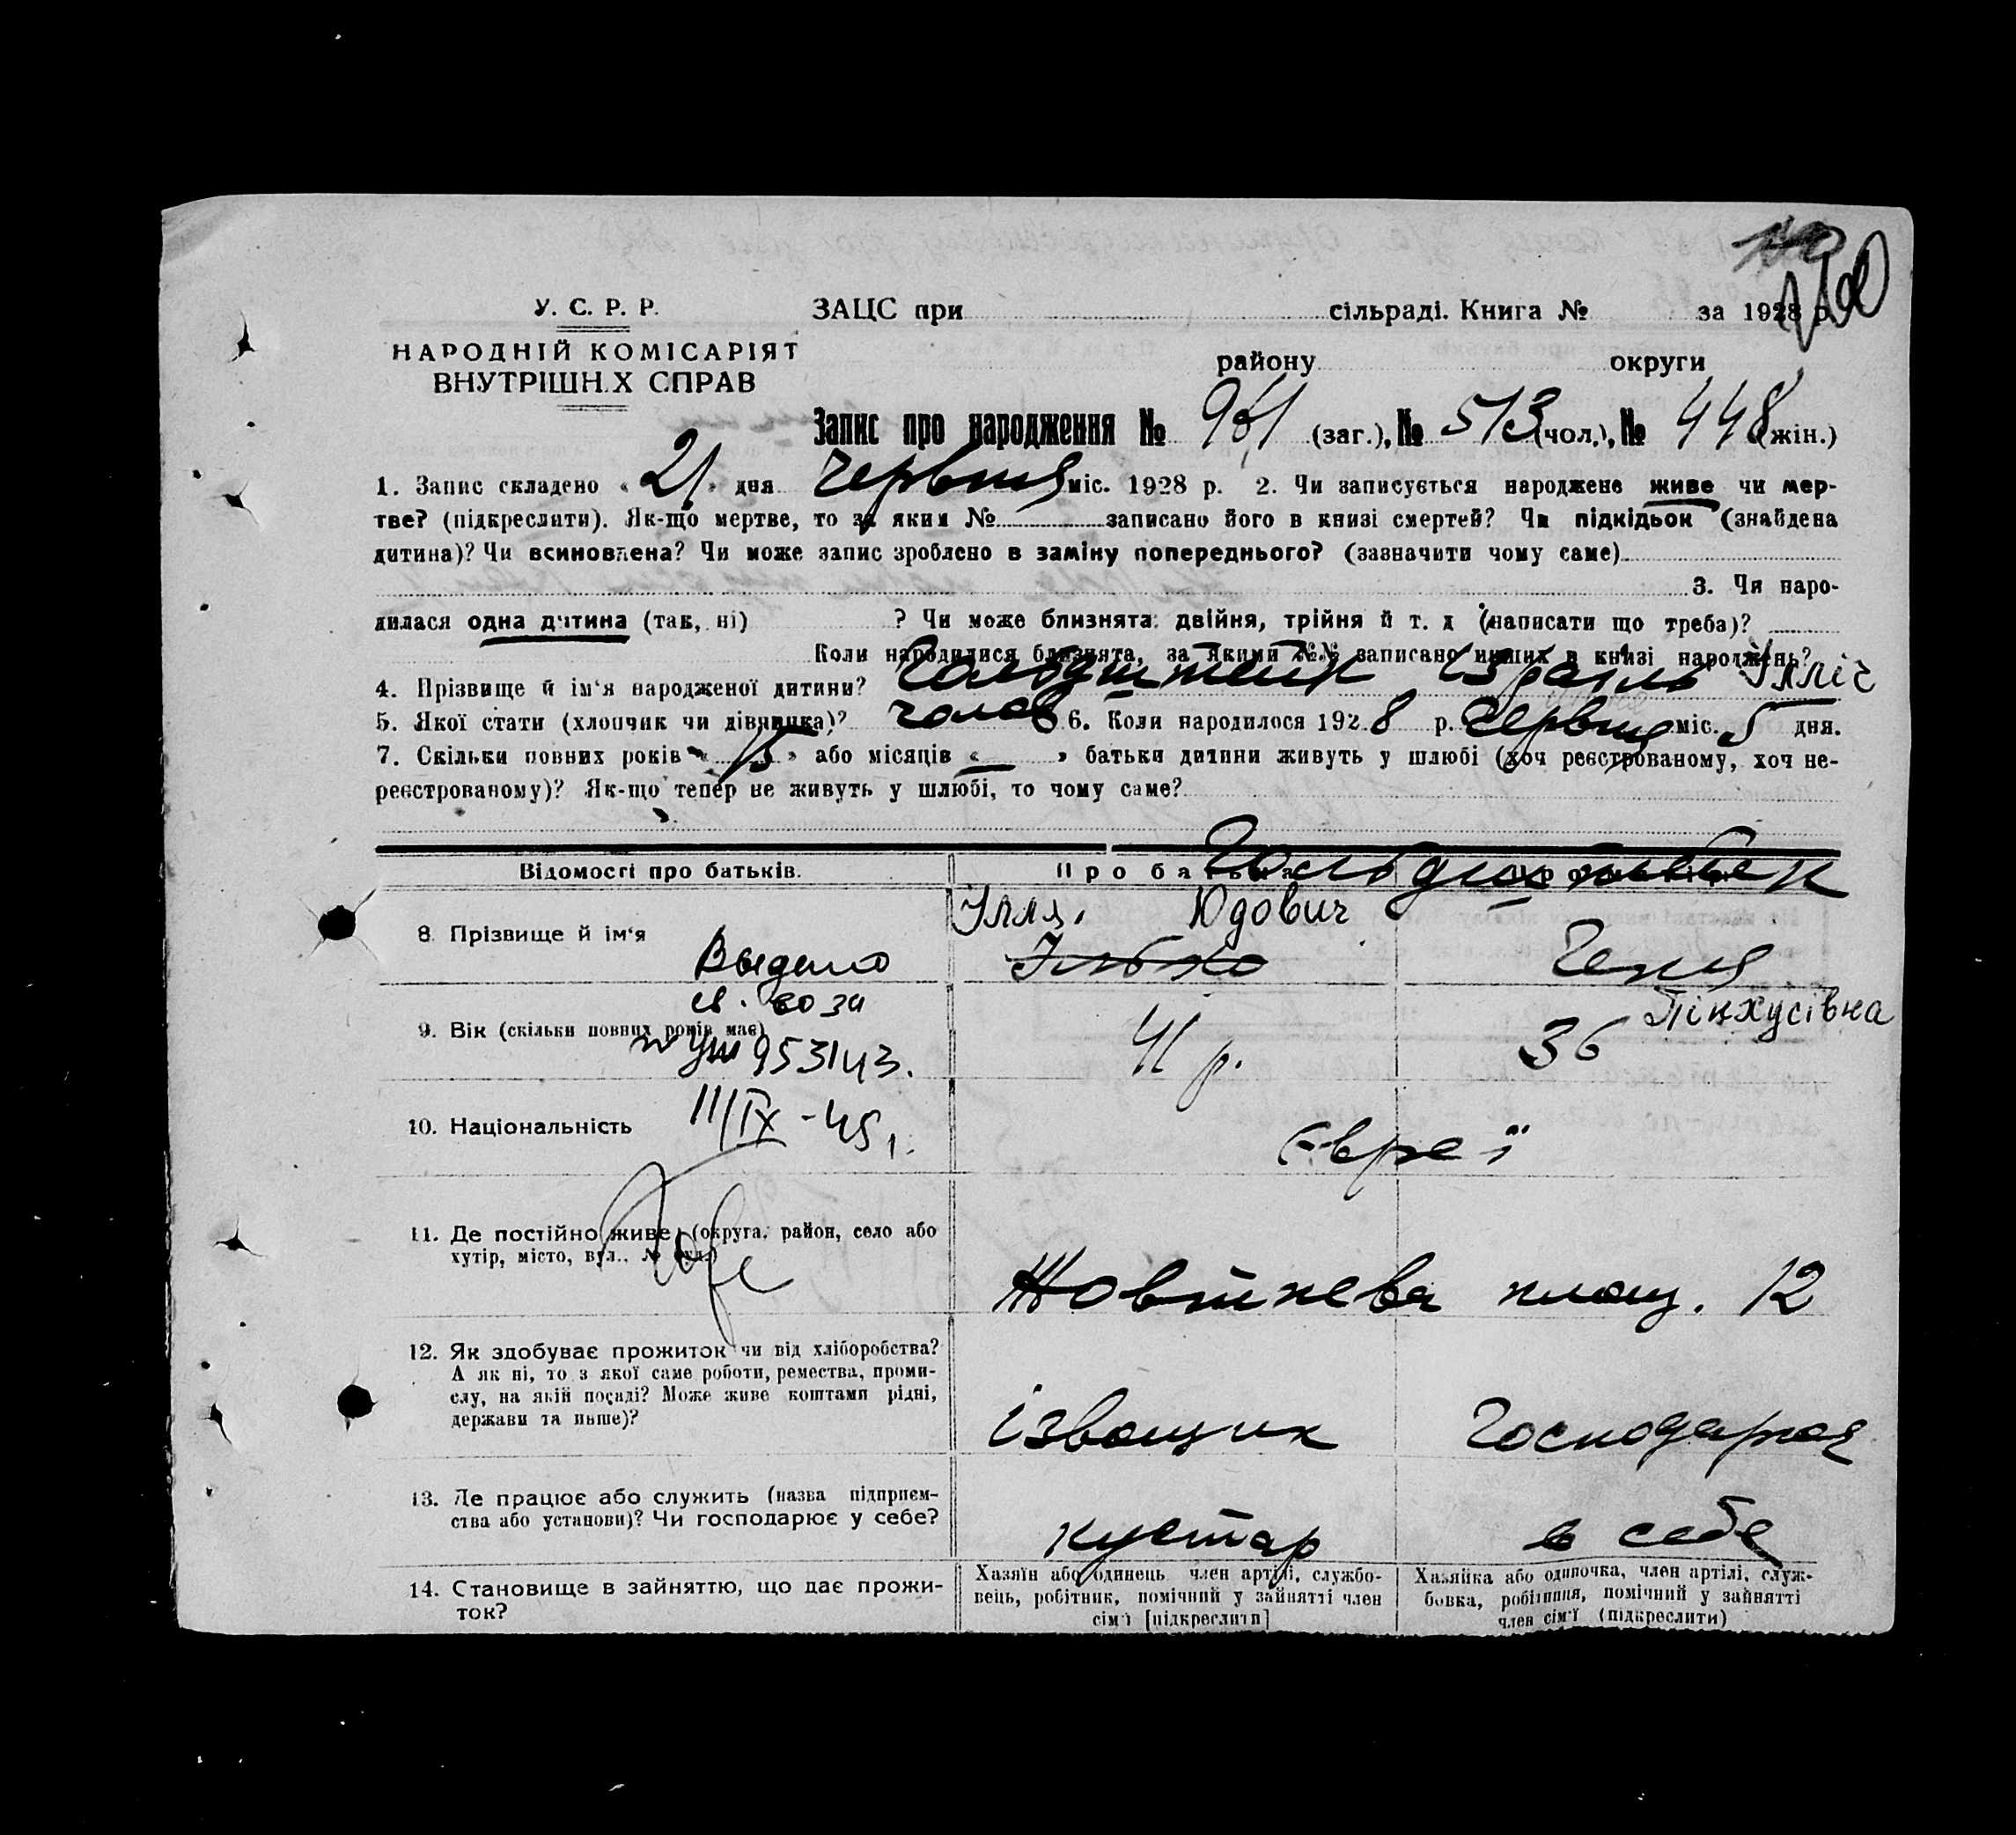 У. С. Р. Р.
НАРОДНІЙ КОМІСАРІЯТ
ВНУТРІШНІХ СПРАВ
ЗАЦС при сільраді. Книга № за 1928 р.
району округи
Запис про народження № 961 (заг.), № 513 (чол.), № 448 (жін.)
1. Запис складено « 21 » дня червня міс. 1928 р. 2. Чи записується народжене живе чи мер-
тве? (підкреслити). Як-що мертве, то за яким № записано його в книзі смертей? Чи підкідьок (знайдена
дитина)? Чи всиновлена? Чи може запис зроблено в заміну попереднього? (зазначити чому саме)
3. Чи наро-
дилася одна дитина (так, ні) ? Чи може близнята: двійня, трійня й т. д (написати що треба)?
Коли народилися близнята, за якими №№ записано инших в книзі народжень?
4. Прізвище й ім'я народженої дитини? Гольдштейн Ізраїль Ілліч
5. Якої стати (хлопчик чи дівчинка)? чолов 6. Коли народилося 1928 р. червня міс. 5 дня.
7. Скільки повних років « 15 » або місяців « — » батьки дитини живуть у шлюбі (хоч реєстрованому, хоч не-
реєстрованому)? Як-що тепер не живуть у шлюбі, то чому саме?
Відомості про батьків. Про батька
Гольдштейн
8. Прізвище й ім'я Ілля Юдович Геня
Пінхусівна
Выдано
св. во за
УШ 953143.
III/IX - 45 г.
9. Вік (скільки повних років має) 41 р. 36
10. Національність Євреї
11. Де постійно живе (округа, район, село або
хутір, місто, вул., № буд.) Жовтнева площ. 12
12. Як здобуває прожиток чи від хліборобства?
А як ні, то з якої саме роботи, ремества, проми-
слу, на якій посаді? Може живе коштами рідні,
держави та инше)? ізвощик Господарка
13. Де працює або служить (назва підприєм-
ства або установи)? Чи господарює у себе? кустар в себе
14. Становище в зайняттю, що дає прожи-
ток?
Хазяїн або одинець член артілі, службо-
вець, робітник, помічний у зайнятті член
сім'ї [підкреслити]
Хазяйка або одиночка, член артілі, служ-
бовка, робітниця, помічний у зайнятті
член сім'ї (підкреслити)